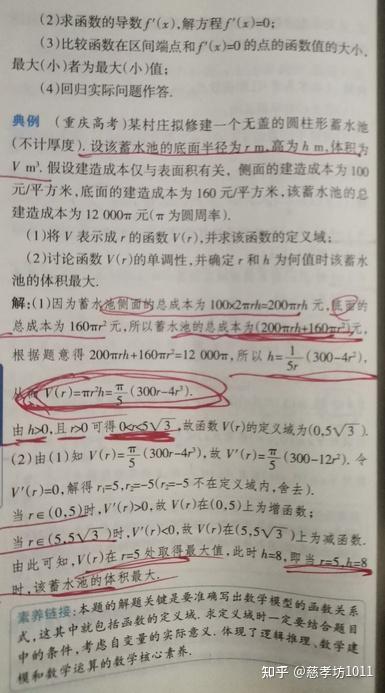 (2)求函数的导数f′(x),解方程f′(x)=0;
(3)比较函数在区间端点和f′(x)=0的点的函数值的大小,
最大(小)者为最大(小)值;
(4)回归实际问题作答.
典例 (重庆高考)某村庄拟修建一个无盖的圆柱形蓄水池
(不计厚度).设该蓄水池的底面半径为r m,高为h m,体积为
V m³.假设建造成本仅与表面积有关,侧面的建造成本为100
元/平方米,底面的建造成本为160元/平方米,该蓄水池的总
建造成本为12 000π元(π为圆周率).
(1)将V表示成r的函数V(r),并求该函数的定义域;
(2)讨论函数V(r)的单调性,并确定r和h为何值时该蓄水
池的体积最大.
解:(1)因为蓄水池侧面的总成本为100×2πrh=200πrh元,底面的
总成本为160πr²元,所以蓄水池的总成本为(200πrh+160πr²)元,
根据题意得200πrh+160πr²=12 000π,所以h=1/5r(300-4r²),
从而V(r)=πr²h=π/5(300r-4r³).
由h>0,且r>0可得0<r<5√3,故函数V(r)的定义域为(0,5√3).
(2)由(1)知V(r)=π/5(300r-4r³),故V′(r)=π/5(300-12r²).令
V′(r)=0,解得r₁=5,r₂=-5(r₂=-5不在定义域内,舍去).
当r∈(0,5)时,V′(r)>0,故V(r)在(0,5)上为增函数;
当r∈(5,5√3)时,V′(r)<0,故V(r)在(5,5√3)上为减函数.
由此可知,V(r)在r=5处取得最大值,此时h=8,即当r=5,h=8
时,该蓄水池的体积最大.
素养链接:本题的解题关键是要准确写出数学模型的函数关系
式,这其中就包括函数的定义域.求定义域时一定要结合题目
中的条件,考虑自变量的实际意义.体现了逻辑推理、数学建
模和数学运算的数学核心素养.
知乎 @慈孝坊1011